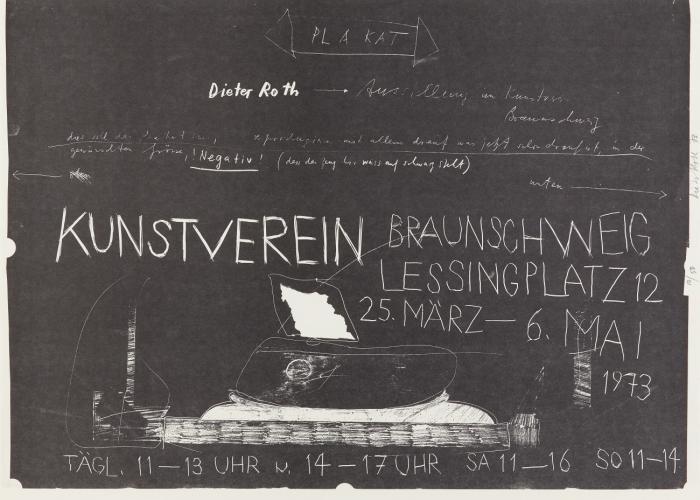 PLAKAT
Dieter Roth → Ausstellung im Kunstver.
Braunschweig
das soll das Plakat sein, reproduzieren mit allem drauf was jetzt schon drauf ist, in der
gewünschten Grösse, ! Negativ ! (dass das jung hier weiss auf schwarz steht)
unten
KUNSTVEREIN BRAUNSCHWEIG
LESSINGPLATZ 12
25. MÄRZ — 6. MAI
1973
TÄGL. 11—13 UHR u. 14—17 UHR SA 11—16 SO 11—14